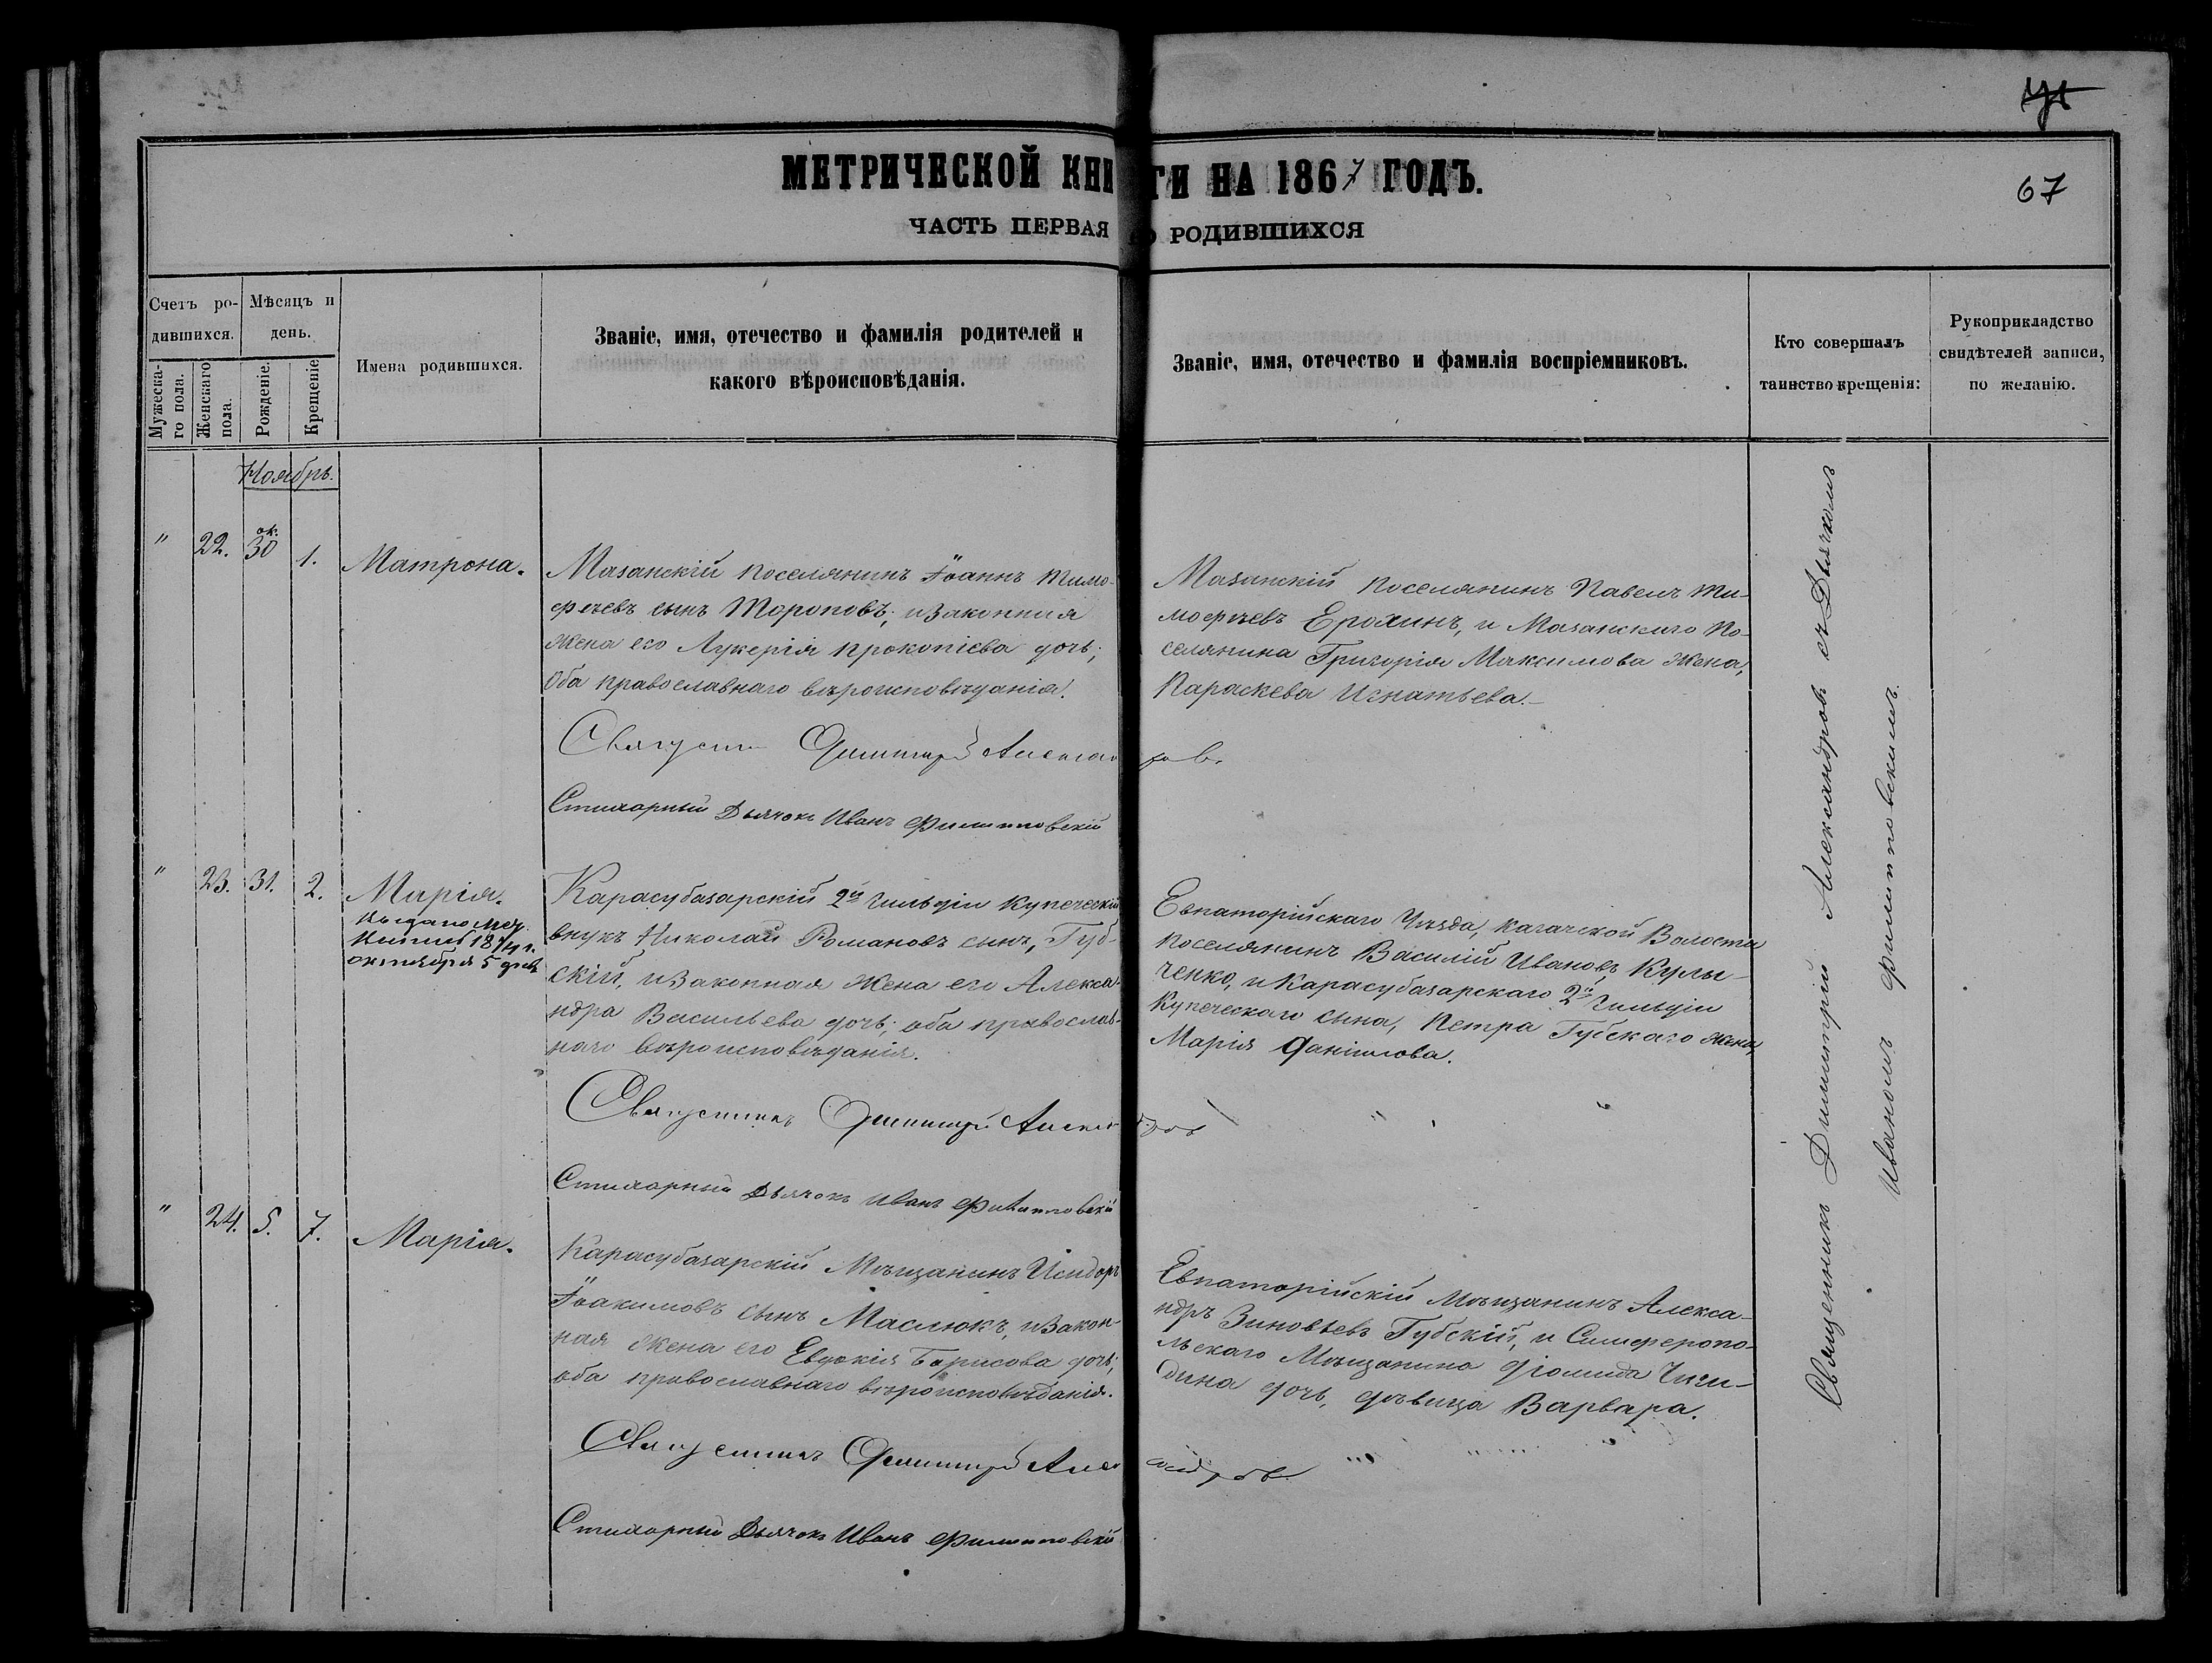 МЕТРИЧЕСКОЙ КНИГИ НА 1867 ГОДЪ.
67
ЧАСТЬ ПЕРВАЯ О РОДИВШИХСЯ
Счетъ родившихся.
Мужескаго пола.
Женскаго пола.
Мѣсяцъ и день.
Рожденіе.
Крещеніе
Имена родившихся.
Званіе, имя, отечество и фамилія родителей и
какого вѣроисповѣданія.
Званіе, имя, отечество и фамилія воспріемниковъ.
Кто совершалъ
таинство крещенія:
Рукоприкладство
свидѣтелей записи,
по желанію.
Ноябрь.
" 22. ок. 30 1. Матрона.
Мазанскій поселянинъ Іоаннъ Тимо-
феевъ сынъ Тороповъ; и законная
жена его Лукерія Прокопіева дочь;
Оба православнаго вѣроисповѣданія.
Мазанскій поселянинъ Павелъ Ти-
мофеевъ Ерохинъ, и Мазанскаго По-
селянина Григорія Максимова жена,
Параскева Игнатьева.
Священникъ Димитрій Александровъ
Стихарный Дьячокъ Иванъ Филипповскій
" 23. 31. 2. Марія.
Выдано
октября 5 дня
Карасубазарскій 2й Гильдіи купеческій
внукъ Николай Романовъ сынъ, Губ-
скій, и законная жена его Алекса-
ндра Васильева дочь; оба православ-
наго вѣроисповѣданія.
Евпаторійскаго Уѣзда, Кагачской Волости
поселянинъ Василій Ивановъ, Кулы-
ченко, и Карасубазарскаго 2й Гильдіи
Купеческаго сына, Петра Губскаго жена,
Марія Даніилова.
Священникъ Димитрій Александровъ
Стихарный Дьячокъ Иванъ Филипповскій
" 24. 5. 7. Марія.
Карасубазарскій Мѣщанинъ Исидоръ
Іоакимовъ сынъ Маслюкъ, и закон-
ная жена его Евдокія Борисова дочь;
оба православнаго вѣроисповѣданія.
Евпаторійскій мѣщанинъ Алекса-
ндръ Зиновьевъ Губскій, и Симферопо-
льскаго Мѣщанина Діомида Чиги-
дина дочь, дѣвица Варвара.
Священникъ Димитрій Александровъ
Стихарный Дьячокъ Иванъ Филипповскій
Священникъ Димитрій Александровъ съ Дьячкомъ
Иваномъ Филипповскимъ.